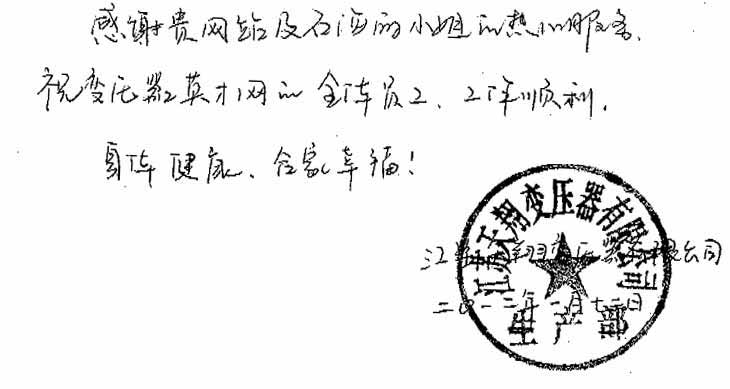 感谢贵网站及石海丽小姐的热心服务.
祝变压器英才网的全体员工、工作顺利,
身体健康、合家幸福!
江苏天翔变压器有限公司
江苏天翔变压器有限公司
二0一二年一月十二日
生产部